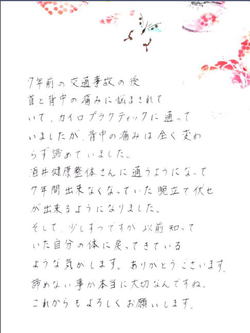 7年前の交通事故の後
首と背中の痛みに悩まされて
いて、カイロプラクティックに通って
いましたが、背中の痛みは全く変わ
らず諦めていました。
酒井健康整体さんに通うようになって
7年間出来なくなっていた腕立て伏せ
が出来るようになりました。
そして、少しずつですが以前知って
いた自分の体に戻ってきている
ような気がします。ありがとうございます。
諦めない事が本当に大切なんですね。
これからもよろしくお願いします。